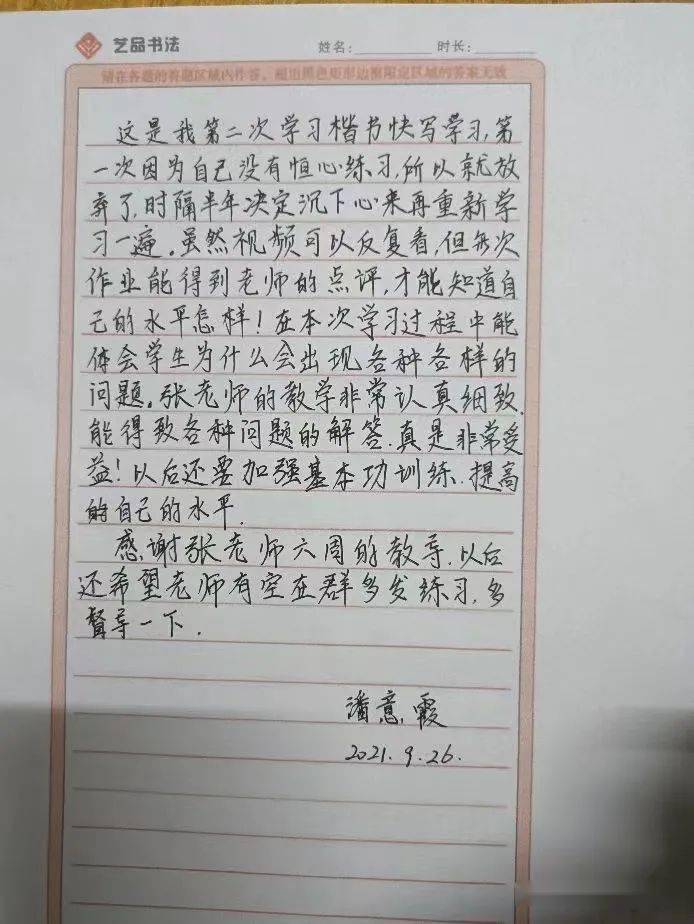 艺品书法 姓名: 时长:
请在各题的答题区域内作答，超出黑色矩形边框限定区域的答案无效
这是我第二次学习楷书快写学习,第
一次因为自己没有恒心练习,所以就放
弃了,时隔半年决定沉下心来再重新学
习一遍。虽然视频可以反复看,但每次
作业能得到老师的点评,才能知道自
己的水平怎样!在本次学习过程中能
体会学生为什么会出现各种各样的
问题。张老师的教学非常认真细致,
能得致各种问题的解答.真是非常受
益!以后还要加强基本功训练.提高
的自己的水平.
感谢张老师六周的教导.以后
还希望老师有空在群多发练习,多
督导一下.
潘意霞
2021.9.26.